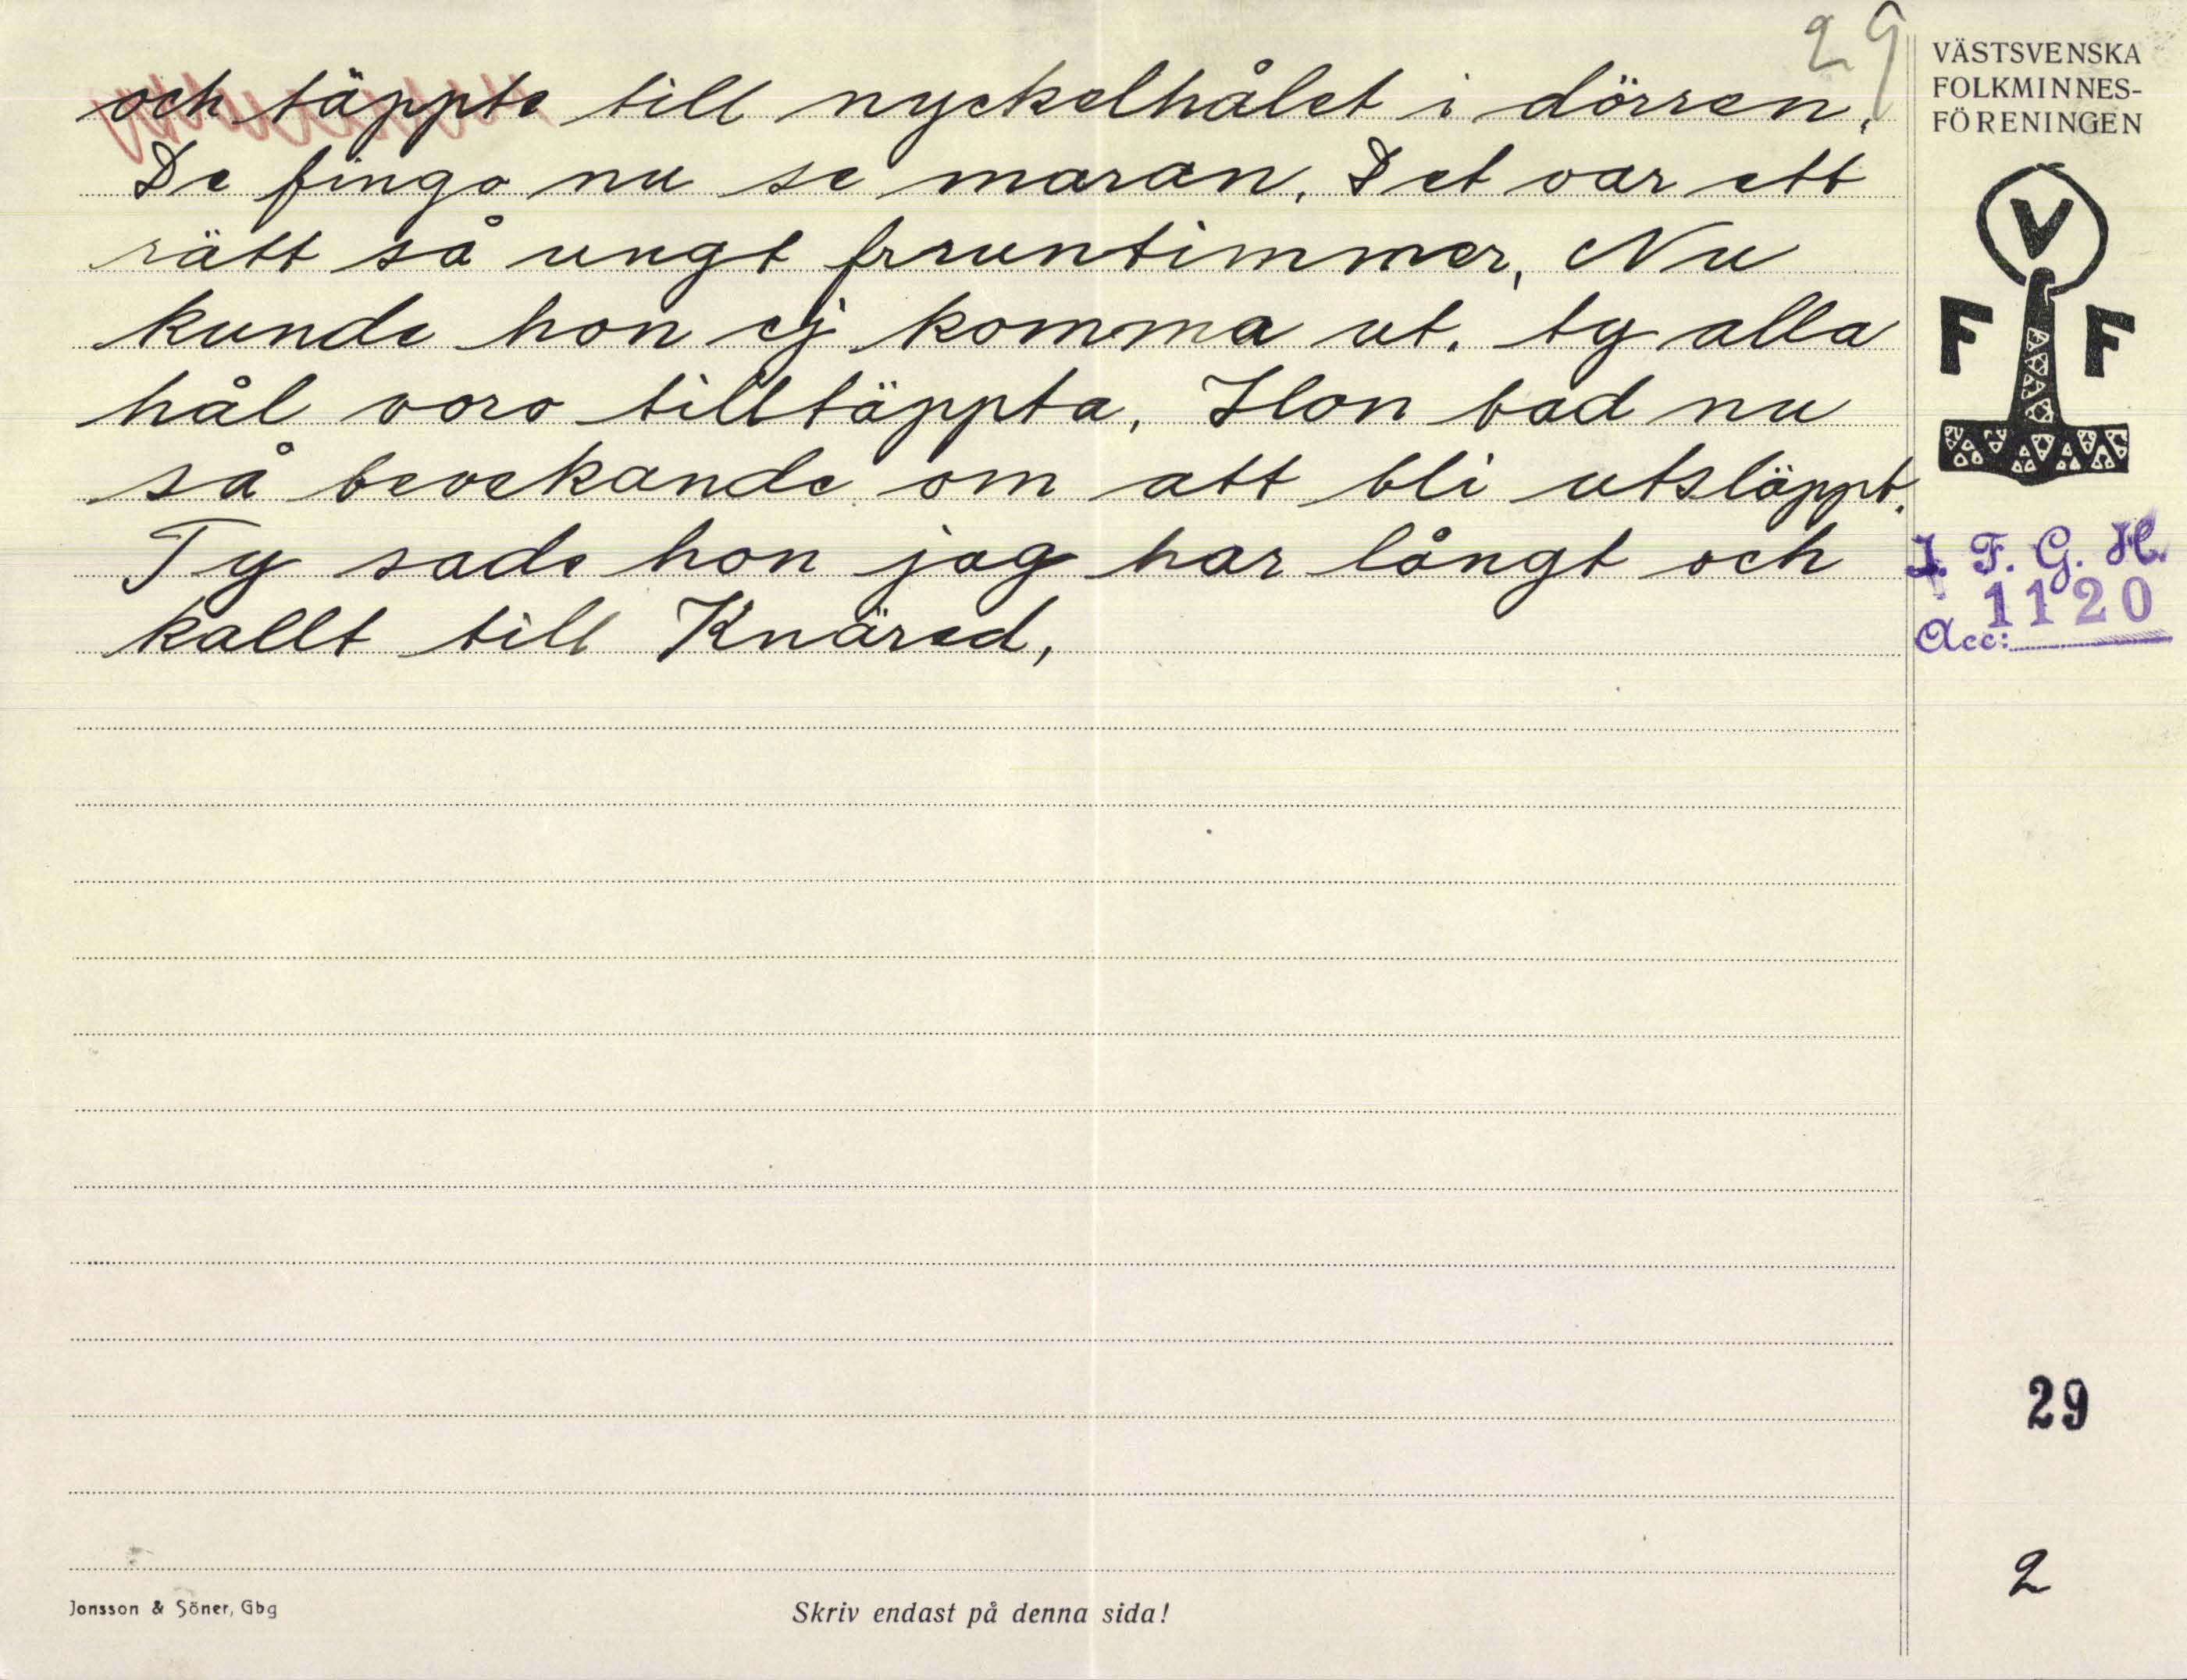 29
VÄSTSVENSKA
FOLKMINNES-
FÖRENINGEN
och täppte till nyckelhålet i dörren.
De fingo nu se maran. Det var ett
rätt så ungt fruntimmer, Nu
kunde hon ej komma ut. ty alla
hål voro tilltäppta. Hon bad nu
så bevekande om att bli utsläppt.
Ty sade hon jag har långt och
kallt till Knäred,
V
F F
I. F. G. H.
1120
Acc:
29
2
Jonsson & Söner, Gbg
Skriv endast på denna sida!